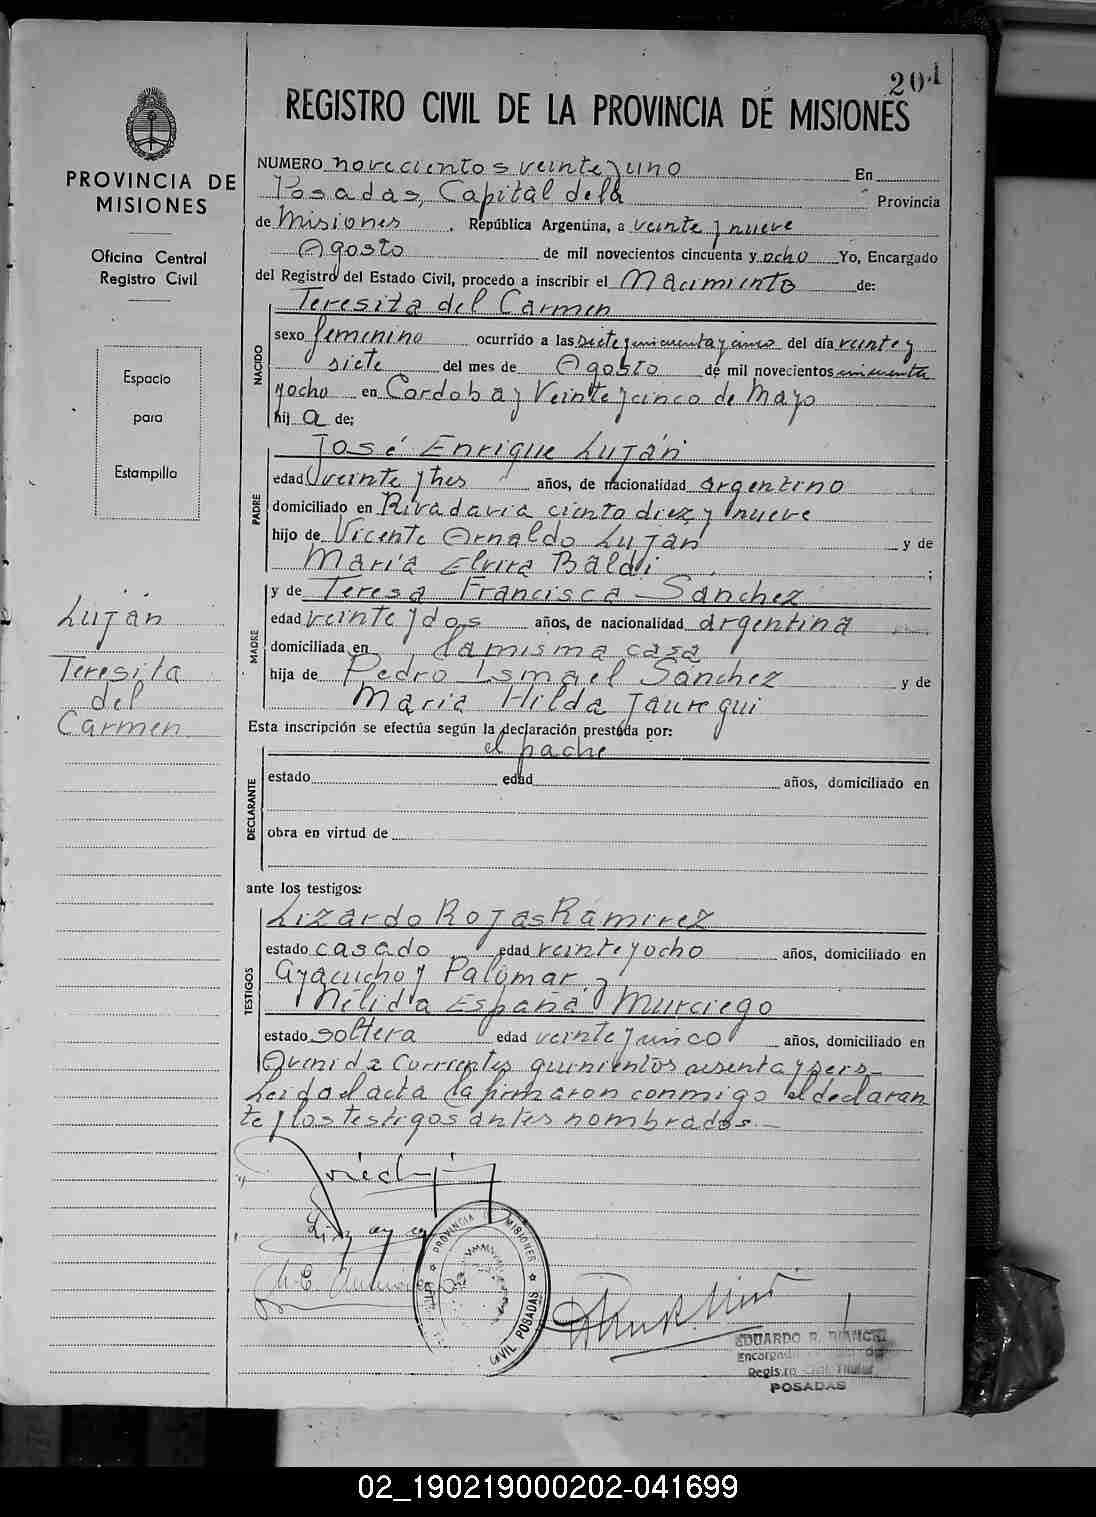 201
REGISTRO CIVIL DE LA PROVINCIA DE MISIONES
PROVINCIA DE
MISIONES
Oficina Central
Registro Civil
Espacio
para
Estampilla
Luján
Teresita
del
Carmen
NUMERO novecientos veinte y uno En
Posadas, Capital de la Provincia
de Misiones, República Argentina, a veinte y nueve
Agosto de mil novecientos cincuenta y ocho Yo, Encargado
del Registro del Estado Civil, procedo a inscribir el Nacimiento de:
NACIDO
Teresita del Carmen
sexo femenino ocurrido a las siete y cincuenta y cinco del día veinte y
siete del mes de Agosto de mil novecientos cincuenta
y ocho en Cordoba y Veinte y cinco de Mayo
hij a de;
PADRE
José Enrique Luján
edad veinte y tres años, de nacionalidad argentino
domiciliado en Rivadavia ciento diez y nueve
hijo de Vicente Arnaldo Luján y de
María Elvira Baldi ;
MADRE
y de Teresa Francisca Sánchez
edad veinte y dos años, de nacionalidad argentina
domiciliada en la misma casa
hija de Pedro Ismael Sánchez y de
María Hilda Jauregui
Esta inscripción se efectúa según la declaración prestada por:
DECLARANTE
el padre
estado edad años, domiciliado en
obra en virtud de
ante los testigos:
TESTIGOS
Lizardo Rojas Ramirez
estado casado edad veinte y ocho años, domiciliado en
Ayacucho y Palomar y
Nélida España Murciego
estado soltera edad veinte y cinco años, domiciliado en
Avenida Corrientes quinientos sesenta y seis
Leido el acta la firmaron conmigo el declaran
te y los testigos antes nombrados.-
PROVINCIA MISIONES
CIVIL POSADAS
EDUARDO R. BIANCHI
Encargado
Registro Civil Titular
POSADAS
02_190219000202-041699